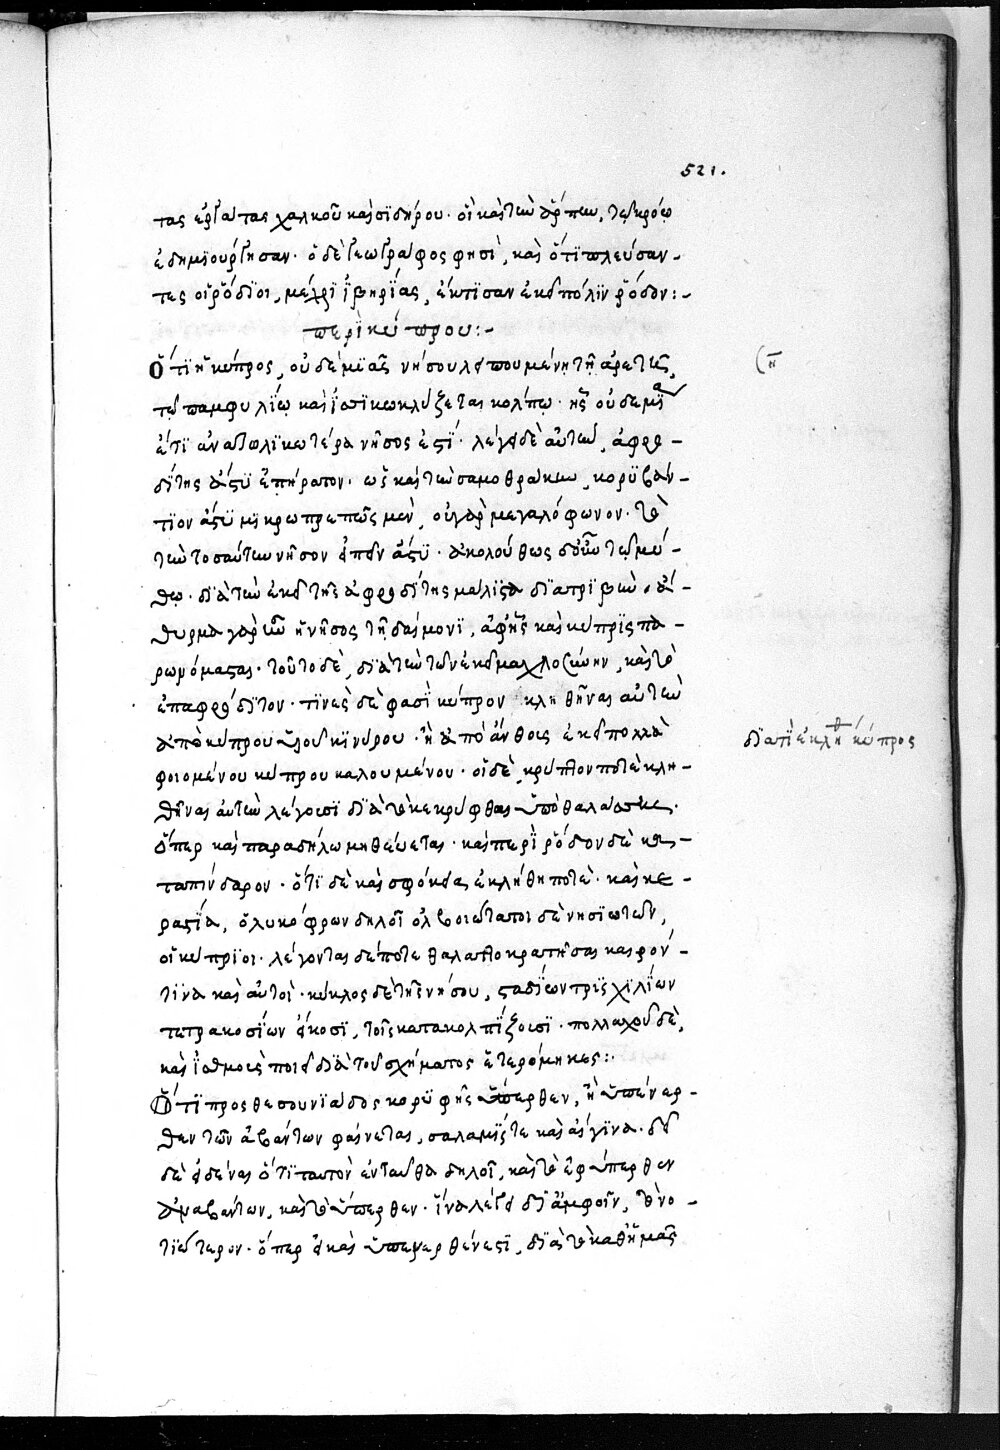 521.
τας ἐργάτας χαλκοῦ καὶ σϊδήρου· οἳ καὶ τὴν ἅρπην, τῷ κρόνῳ
ἐδημϊούργησαν· ὁ δὲ γεωγράφος φησὶ, καὶ ὅτϊ πλεύσαν-
τες οἱ ῥόδϊοι, μέχρϊ ἰβηρΐας, ἔκτισαν ἐκεῖ πόλϊν ῥόδον:-
περὶ κύπρου:-
Ὅτϊ ἡ κύπρος, οὐδεμϊᾶς νήσου λειπουμένη τῆ ἀρετῆ,
τῷ παμφυλΐῳ καὶ ἰσσϊκῷ κλύζεται κόλπῳ· ἧς οὐδεμΐα
ἔτϊ ἀνατολϊκωτέρα νῆσος ἐστΐ· λέγει δὲ αὐτὴν, ἀφρο-
δΐτης ἄστϋ ἐπήρατον· ὡς καὶ τὴν σαμοθράκην, κορϋβάν-
τϊον ἄστϋ μϊκρωπρεπῶς μὲν, οὐ γὰρ μεγαλόφωνον· τὸ
τὴν τοσαύτην νῆσον εἰπεῖν ἄστϋ· ἀκολούθως δ' οὖν τῷ μύ-
θῳ· δϊὰ τὴν ἐκεῖ τῆς ἀφροδΐτης μάλϊστα δϊατρϊβὴν, ἄ-
θυρμα γὰρ ἦν ἡ νῆσος τῆ δαίμονϊ, ἀφ' ἧς καὶ κύπρϊς πα-
ρωνόμασται· τοῦτο δὲ, δϊὰ τὴν τῶν ἐκεῖ μαχλοσύνην, καὶ τὸ
ἐπαφρόδϊτον· τϊνὲς δὲ φασῒ κύπρον κληθῆναι αὐτὴν
ἀπὸ κύπρου υἱοῦ κϊνύρου· ἢ ἀπὸ ἄνθους ἐκεῖ πολλὰ
φυομένου κύπρου καλουμένου· οἱ δὲ, κρύπτον ποτὲ κλη-
θῆναι αὐτὴν λέγουσϊ δϊὰ τὸ κεκρύφθαι ὑπὸ θαλάσσης·
ὅπερ καὶ παραδήλω μυθεύεται· καὶ περῒ ῥόδον δὲ κα-
τὰ πίνδαρον· ὅτϊ δὲ καὶ σφήκεια ἐκλήθη ποτὲ· καὶ κε-
ραστΐα, ὁ λυκόφρων δηλοῖ ὀλβϊώτατοι δὲ νησϊωτῶν,
οἱ κύπρϊοι· λέγονται δέ ποτε θαλαττοκρατῆσαι καιρόν
τϊνα καὶ αὐτοὶ· κύκλος δὲ τῆς νήσου, σταδΐων τρϊσχϊλΐων
τετρακοσίων εἴκοσϊ, τοῖς κατακολπΐζουσϊ· πολλαχοῦ δὲ,
καὶ ἰσθμοὺς ποιεῖ δϊὰ τοῦ σχήματος ἑτερόμηκες:·
Ὅτϊ πρόσθε σουνϊάδος κορϋφῆς ὕπερθεν, ἢ ὑπένερ-
θεν τῶν ἀβάντων φαίνεται, σαλαμΐς τε καὶ αἴγϊνα· δεῖ
δὲ εἰδέναι ὅτϊ ταυτὸν ἐνταῦθα δηλοῖ, καὶ τὸ ἐφύπερθεν
ἀμαβάντων, καὶ τὸ ὕπερθεν· ἵνα λέγει δϊ' ἀμφοῖν, τὸ νο-
τϊώτερον· ὅπερ εἰ καὶ ὑπένερθέν ἐστϊ, δϊὰ τὸ καθ' ἡμᾶς
δϊατῒ ἐκλήθη κύπρος